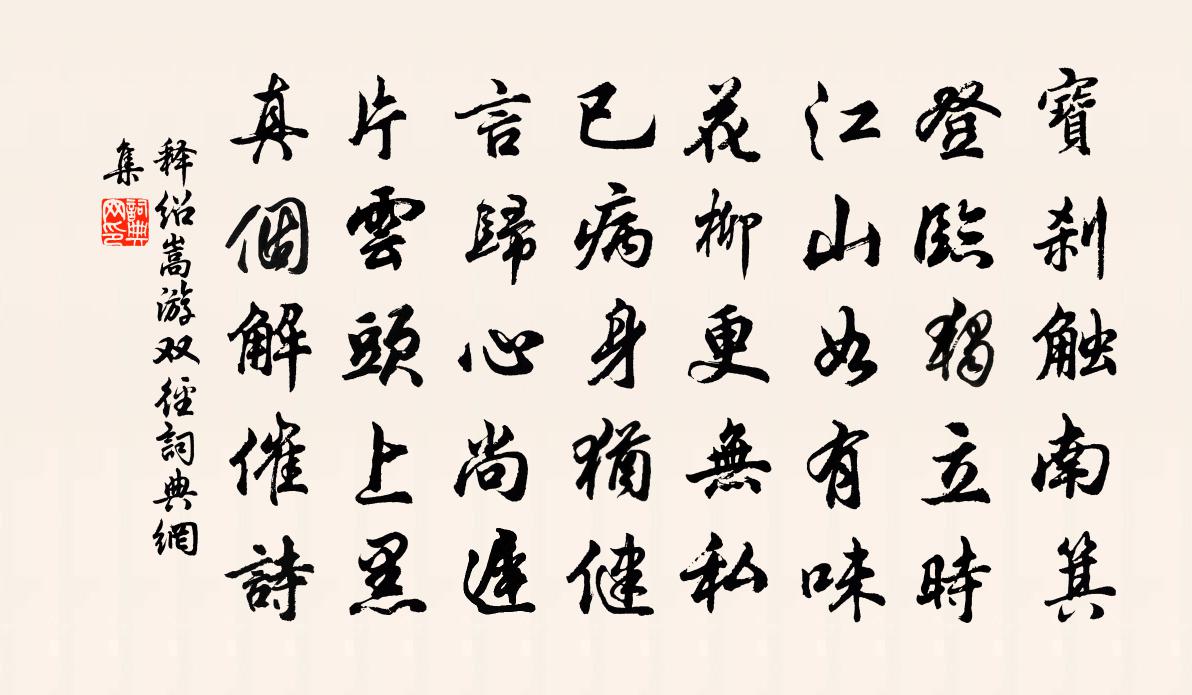 寶刹触南箕
登臨獨立時
江山如有味
花柳更無私
已病身猶健
言歸心尚遲
片雲頭上黑
真個解催詩
释绍嵩游双径詞典網
集
詞典网印